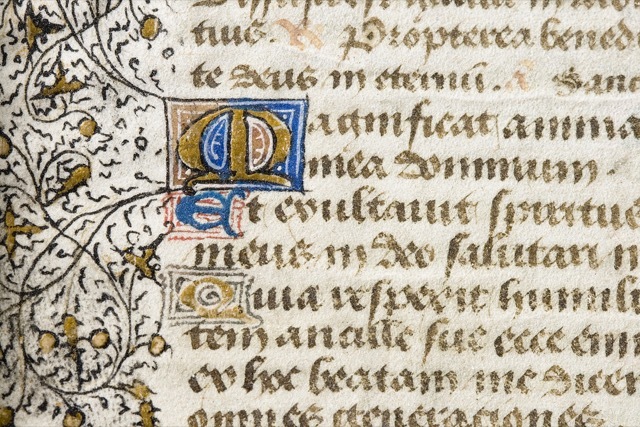 tuis. V Propterea bened
te deus in eternū. A Sanc
Magnificat anima
mea dominum.
Et exultavit spiritus
meus in deo salutari m
Quia respexit humili
tem ancille sue ecce eni
ex hoc beatam me dicen
omnes generationes